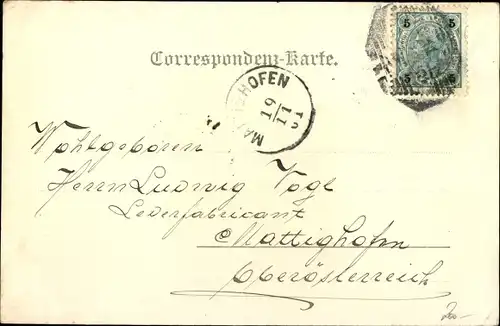 5 5
5 5
Correspondenz-Karte.
MATTIGHOFEN
19
11
01
Wohlgeboren
Herrn Ludwig Vogl
Lederfabricant
Mattighofen
Oberösterreich